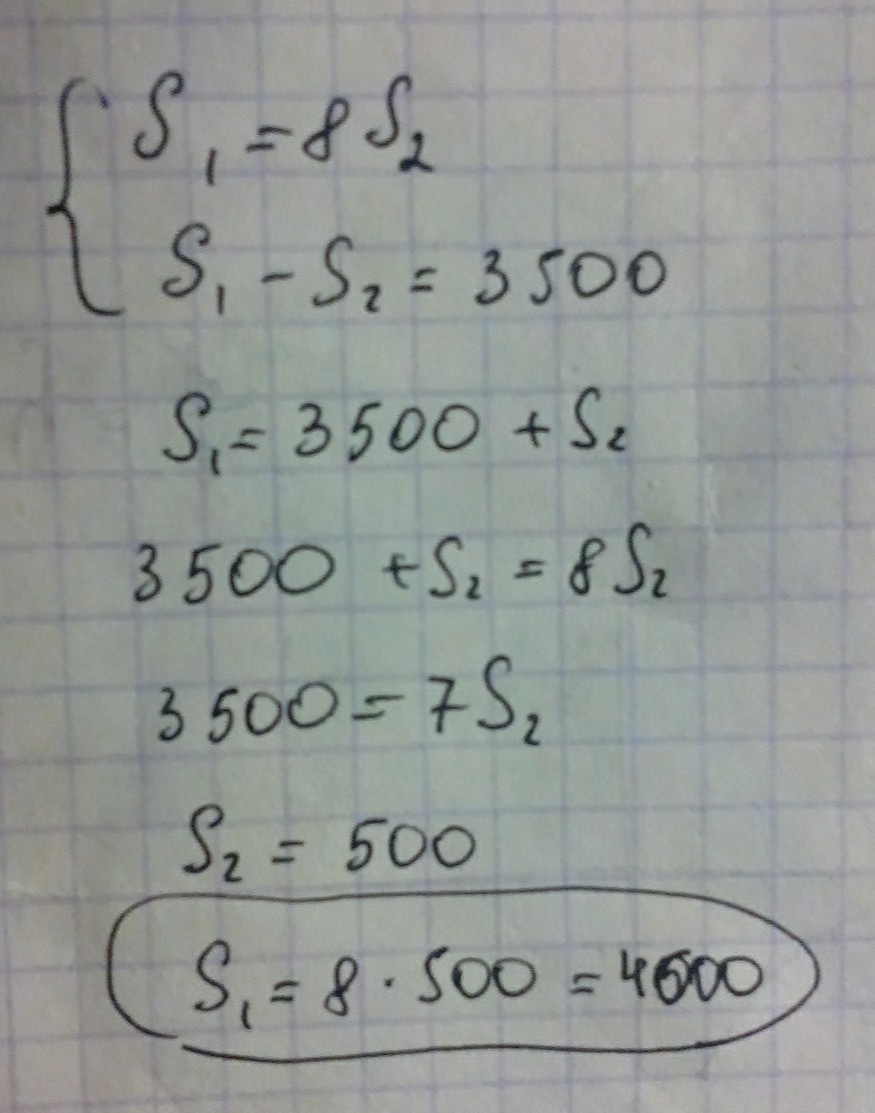 S₁ = 8 S₂
S₁ - S₂ = 3500
S₁ = 3500 + S₂
3500 + S₂ = 8 S₂
3500 = 7 S₂
S₂ = 500
S₁ = 8 · 500 = 4000